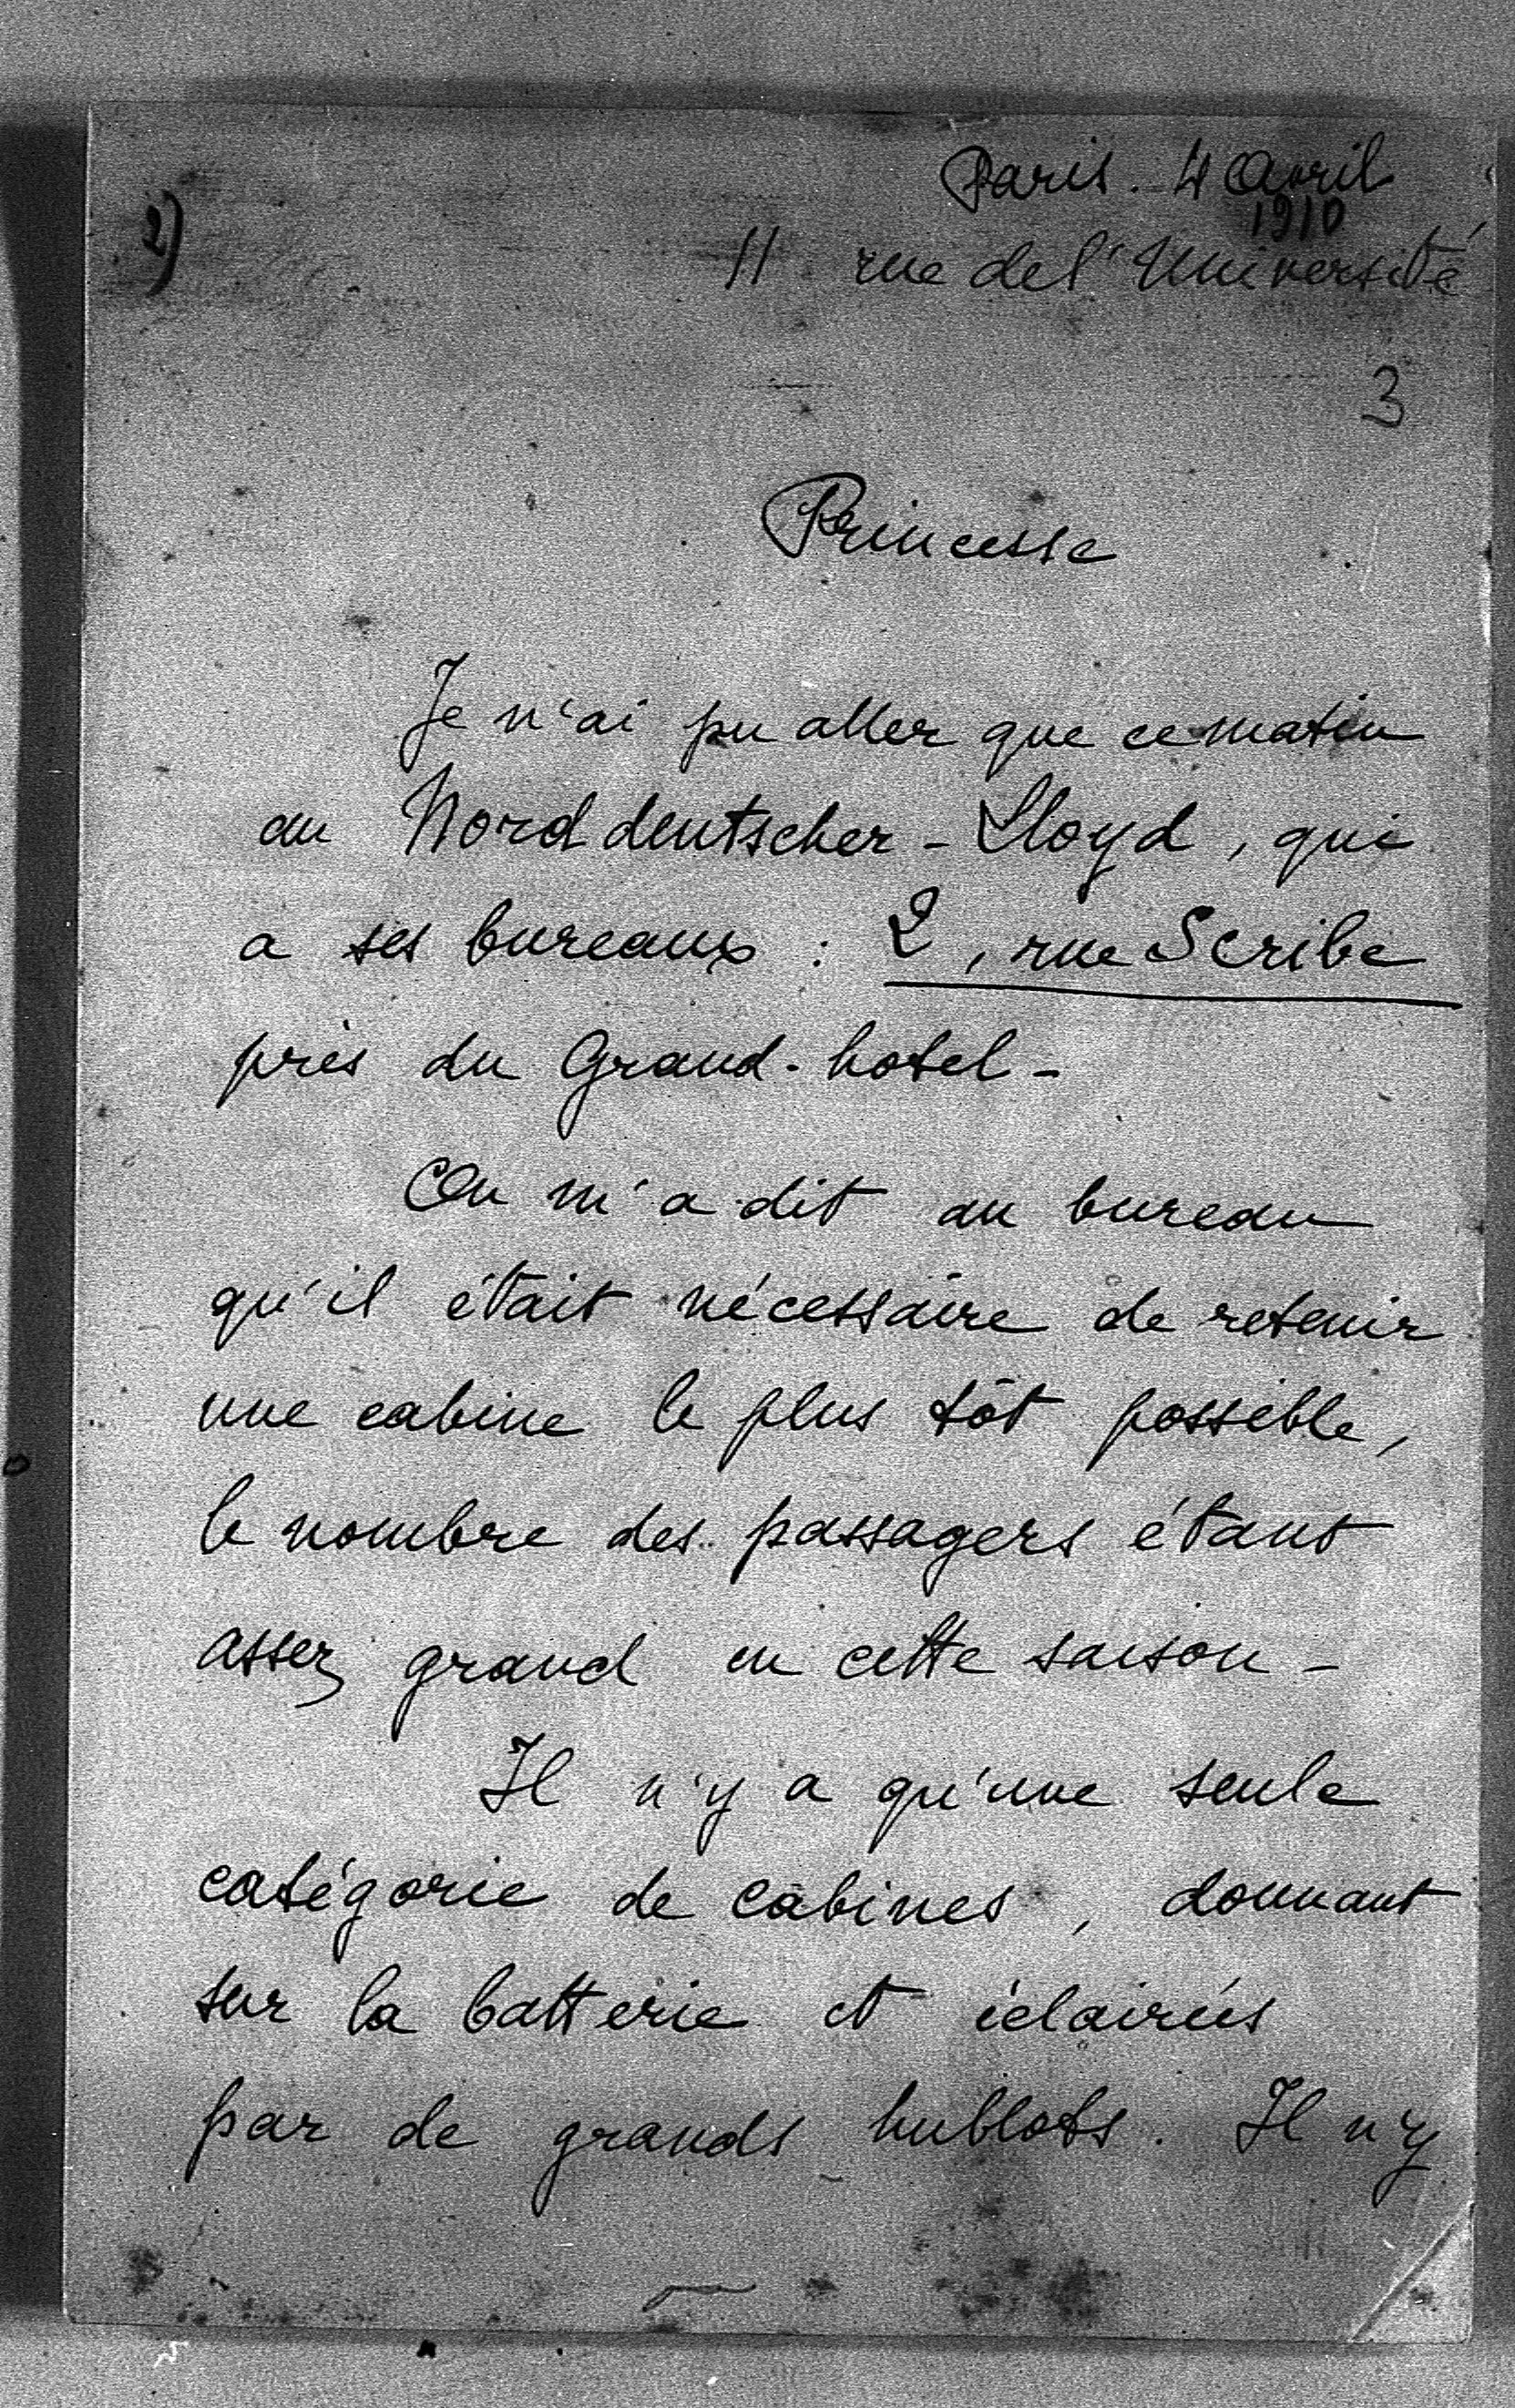 Paris. 4 Avril
1910
2)
11 rue de l'Université
3
Princesse
Je n'ai pu aller que ce matin
au Norddeutscher-Lloyd, qui
a ses bureaux : 2, rue Scribe
près du Grand-hotel -
On m'a dit au bureau
qu'il était nécessaire de retenir
une cabine le plus tôt possible,
le nombre des passagers étant
assez grand en cette saison -
Il n'y a qu'une seule
catégorie de cabines, donnant
sur la batterie et éclairées
par de grands hublots. Il n'y